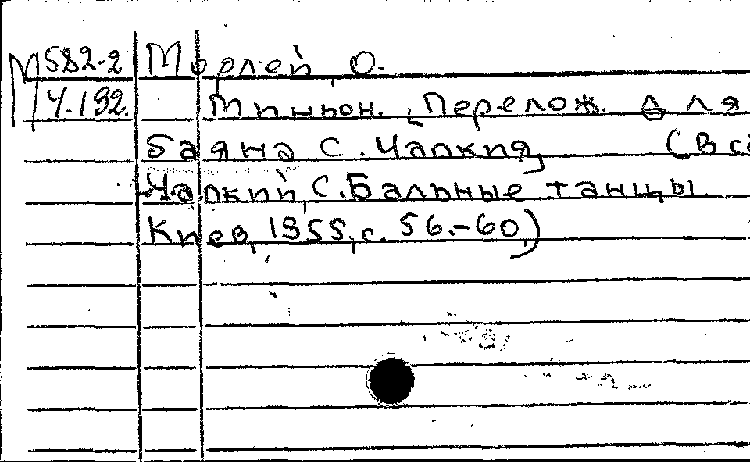 М 582-2 Морлей, О.
Ч.192. Миньон. Перелож. для
баяна С. Чапкия (В сб
Чапкий, С. Бальные танцы.
Киев, 1955, с. 56.-60.)